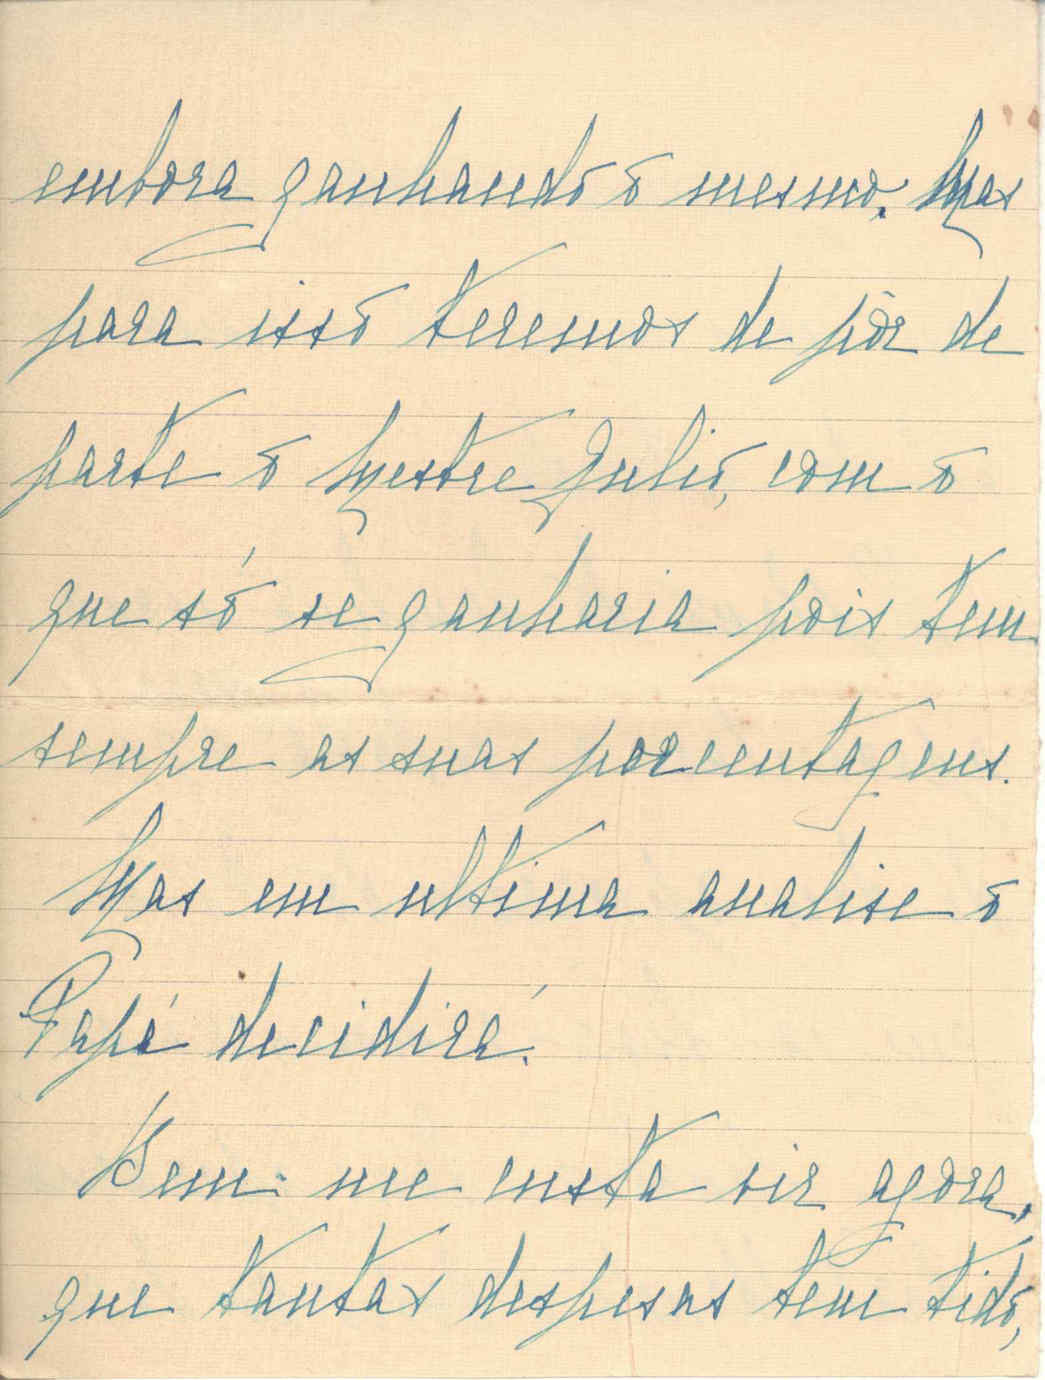 embora ganhando o mesmo. Mas
para isso teremos de pôr de
parte o Mestre Julio, com o
que só se ganharia pois tem
sempre as suas porcentagens.
Mas em ultima analise o
Papá decidirá.
Bem me custa vir agora,
que tantas despesas tem tido,